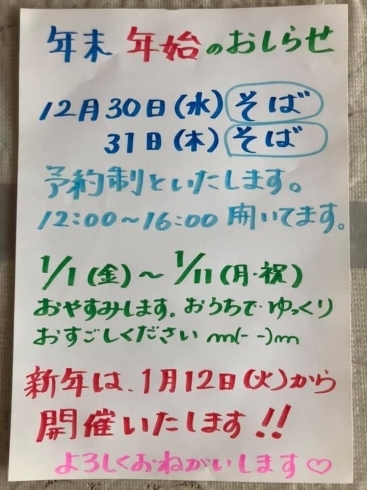 年末 年始のおしらせ
12月30日(水) そば
31日(木) そば
予約制といたします。
12:00〜16:00 開いてます。
1/1(金)〜1/11(月・祝)
おやすみします。おうちで ゆっくり
おすごしください m(- -)m
新年は、1月12日(火)から
開催いたします!!
よろしくおねがいします♡